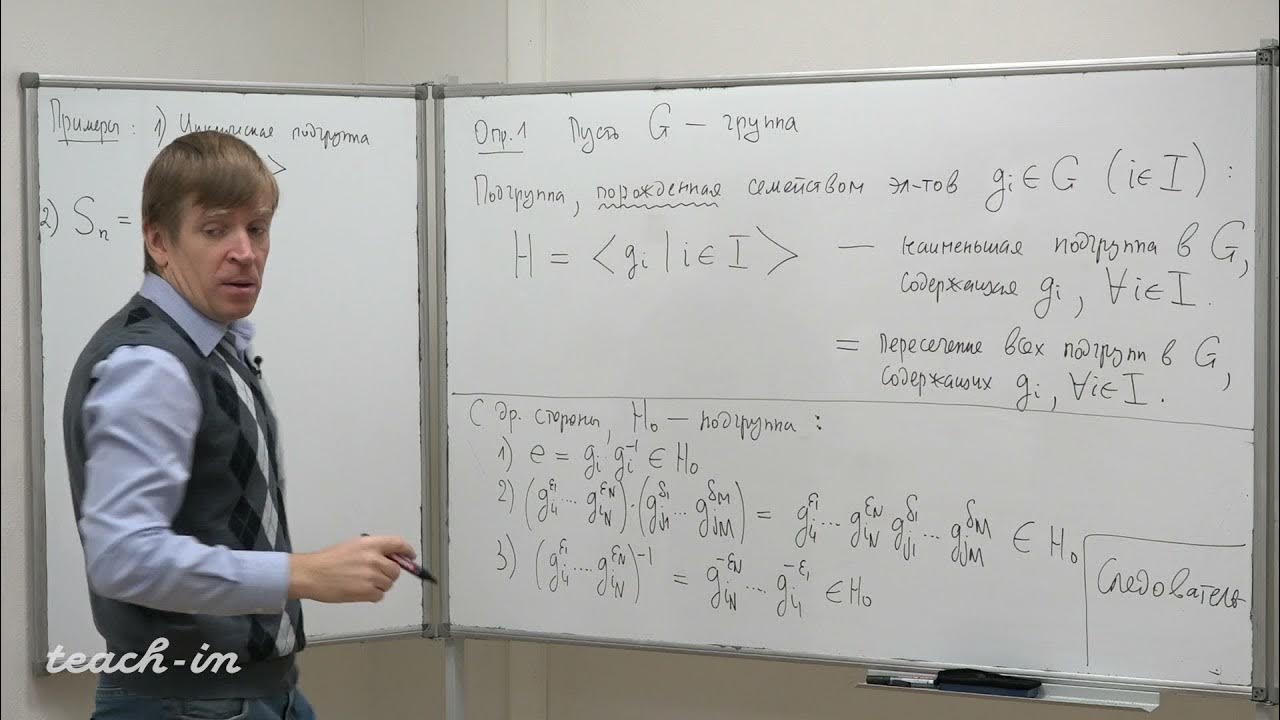 Примеры: 1) Циклическая подгруппа
>
2) Sₙ =
Опр.1 Пусть G — группа
Подгруппа, порожденная семейством эл-тов gᵢ∈G (i∈I):
H = <gᵢ | i∈I> — наименьшая подгруппа в G,
содержащая gᵢ, ∀i∈I.
= пересечение всех подгрупп в G,
содержащих gᵢ, ∀i∈I.
С др. стороны, H₀ — подгруппа:
1) e = gᵢ gᵢ⁻¹ ∈ H₀
2) (g_{i₁}^{ε₁} ... g_{i_N}^{ε_N})·(g_{j₁}^{δ₁} ... g_{j_M}^{δ_M}) = g_{i₁}^{ε₁} ... g_{i_N}^{ε_N} g_{j₁}^{δ₁} ... g_{j_M}^{δ_M} ∈ H₀
3) (g_{i₁}^{ε₁} ... g_{i_N}^{ε_N})⁻¹ = g_{i_N}^{-ε_N} ... g_{i₁}^{-ε₁} ∈ H₀
Следователь
teach-in